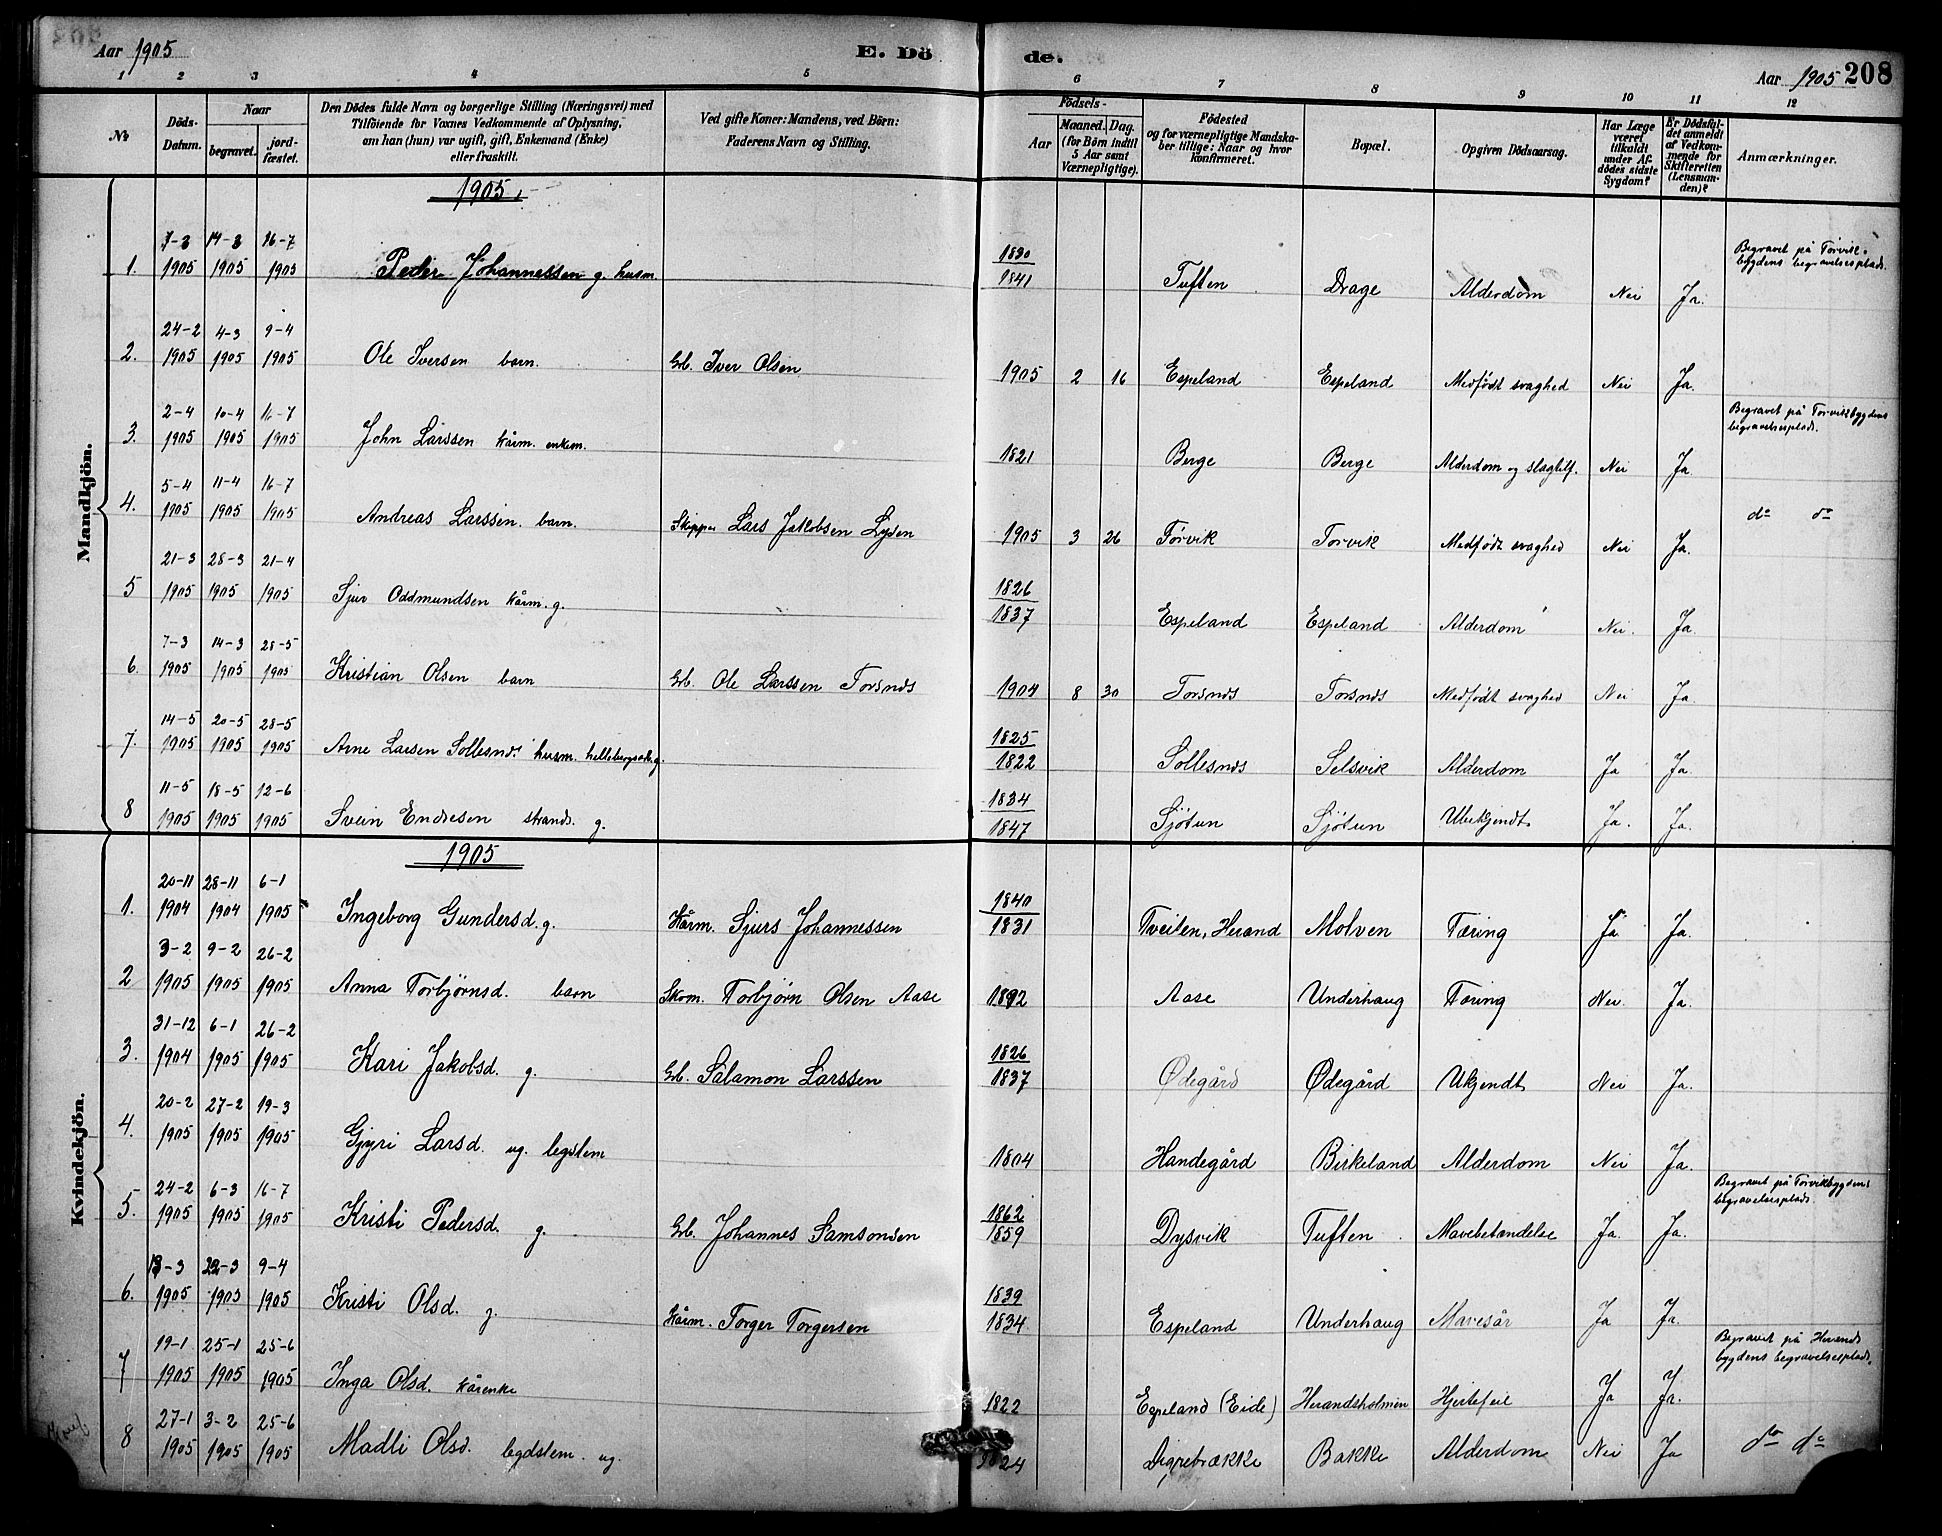 Aar 1905 E. Dö de. Aar 1905 208
1 2 3 4 5 6 7 8 9 10 11 12
No Döds-Datum. Naar begravet. jord-fæstet. Den Dödes fulde Navn og borgerlige Stilling (Næringsvei) med Tilföiende for Voxnes Vedkommende af Oplysning, om han (hun) var ugift, gift, Enkemand (Enke) eller fraskilt. Ved gifte Koner: Mandens, ved Börn: Faderens Navn og Stilling. Födsels- Aar Maaned. Dag. (for Börn indtil 5 Aar samt Værnepligtige). Födested og for værnepligtige Mandska-ber tillige: Naar og hvor konfirmeret. Bopæl. Opgiven Dödsaarsag. Har Læge været tilkaldt under Af-dödes sidste Sygdom? Er Dödsfal-det anmeldt af Vedkom-mende for Skifteretten (Lensman-den)? Anmærkninger.
Mandkjön.
1905.
1. 1905 14-3 1905 16-7 1905 Peder Johannessen g. husm 1830 1841 Tuften Drage Alderdom Nei Ja. Begravet på Torvik-bygdens begravelsesplads.
2. 24-2 1905 4-3 1905 9-4 1905 Ole Iversen barn. Gb. Iver Olsen 1905 2 16 Espeland Espeland Medfødt svaghed Nei Ja.
3. 2-4 1905 10-4 1905 16-7 1905 John Larssen kårm. enkem. 1821 Berge Berge Alderdom og slagtilf. Nei Ja Begravet på Torviksbygdens begravelsesplads.
4. 5-4 1905 11-4 1905 16-7 1905 Andreas Larssen. barn. Skipper Lars Jakobsen 1905 3 26 Torvik Torvik Medfødt svaghed Nei Ja. do do
5 21-3 1905 28-3 1905 21-4 1905 Sjur Oddmundsen kårm. g. 1826 1837 Espeland Espeland Alderdom Nei. Ja.
6. 7-3 1905 14-3 1905 28-5 1905 Kristian Olsen barn Gb. Ole Larssen Torsnes 1904 8 30 Torsnes Torsnes Medfødt svaghed Nei Ja
7. 14-5 1905 20-5 1905 28-5 1905 Arne Larsen Sollesnes husm. g. 1825 1822 Sollesnes Selsvik Alderdom Ja Ja.
8 11-5 1905 18-5 1905 12-6 1905 Svein Endresen strands. g. 1834 1847 Sjøtun Sjøtun Ubekjendt Ja. Ja.
Kvindekjön.
1905
1. 20-11 1904 28-11 1904 6-1 1905 Ingeborg Gundersd. g. Kårm. Sjurs Johannessen 1840 1831 Tveiten, Herand Molven Tæring Ja Ja.
2 3-2 1905 9-2 1905 26-2 1905 Anna Torbjørnsd. barn Skom. Torbjørn Olsen Aase 1892 Aase Underhaug Tæring Nei. Ja.
3. 31-12 1904 6-1 1905 26-2 1905 Kari Jakobsd. g. Gb. Salamon Larssen 1826 1837 Ødegård Ødegård Ukjendt Nei Ja.
4. 20-2 1905 27-2 1905 19-3 1905 Gjyri Larsd. ug. legdslem 1804 Handegård Birkeland Alderdom Nei Ja.
5. 24-2 1905 6-3 1905 16-7 1905 Kristi Pedersd. g. Gb. Johannes Samsonsen 1862 1859 Dysvik Tuften Mavebetændelse Ja. Ja. Begravet på Torviksbygdens begravelsesplads.
6. 1905 22-3 1905 9-4 1905 Kristi Olsd. g. Kårm. Torger Torgersen 1839 1834 Espeland Underhaug Mavesår Ja Ja.
7 19-1 1905 25-1 1905 25-6 1905 Inga Olsd. kårenke 1822 Espeland (Eide) Herandsholmen Hjertefeil Ja Ja. Begravet på Herands bygdens begravelsesplads.
8 27-1 1905 3-2 1905 25-6 1905 Madli Olsd. legdslem. ug. 1824 Digrebrække Bakke Alderdom Nei Ja do do